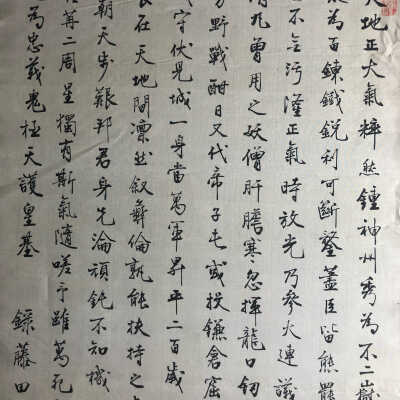 天地正大氣粹然鍾神州秀為不二嶽
為百鍊鐵銳利可斷鍪藎臣皆熊羆
不世無污隆正氣時放光乃參大連議
清丸曾用之妖僧肝膽寒忽揮龍口劍
芳野戰酣日又代帝子屯或投鎌倉窟
守伏見城一身當萬軍昇平二百歲
長在天地間凜然敘彝倫孰能扶持之
朝天步艱邦君身先淪頑鈍不知機
苒二周星獨有斯氣隨嗟予雖萬死
為忠義鬼極天護皇基
錄藤田